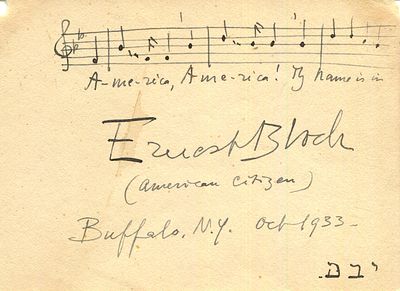 A-me-rica, Ame-rica! Thy name is in
Ernest Bloch
(american citizen)
Buffalo, N.Y. Oct 1933-